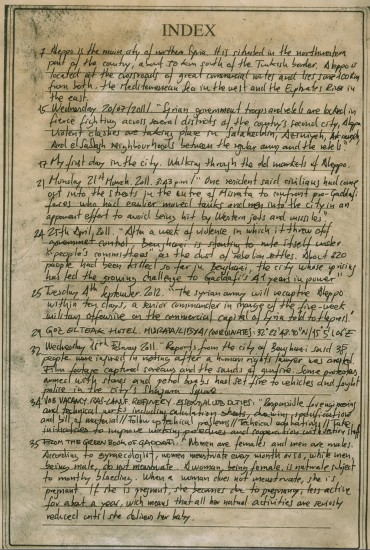 INDEX
7 Aleppo is the main city of northern Syria. It is situated in the northwestern
part of the country, about 50 km south of the Turkish border. Aleppo is
located at the crossroads of great commercial routes and lies some 100 km
from both the Mediterranean Sea in the west and the Euphrates River in
the east.
15 Wednesday "Syrian government troops and rebels are locked in
fierce fighting across several districts of the country's second city, Aleppo.
Violent clashes are taking place in Salaheddin,
And neighbourhoods between the regular army and the rebels"
17 My first day in the city. Walking through the old markets of Aleppo.
21 Monday 21st March, 2011. "One resident said civilians had come
out into the streets in the centre of Misrata to confront pro-Gaddafi
forces who had earlier moved tanks and men into the city in an
apparent effort to avoid being hit by Western jets and missiles"
24 25th April, 2011. "After a week of violence in which it threw off
government control, Benghazi is starting to rule itself under
"people's committees" as the dust of rebellion settles. About 220
people had been killed so far in Benghazi, the city whose uprising
has led the growing challenge to Gaddafi's 41 years in power"
25 Tuesday 4th September 2012. "The Syrian army will recapture Aleppo
within ten days, a senior commander in charge of the five-week
military offensive on the commercial capital of Syria told reporters"
29 GOZ ELTEEK HOTEL MISRATA/LIBYA/COORDINATES:
32 Wednesday 16th February 2011. "Reports from the city of Benghazi said 38
people were injured in rioting after a human rights lawyer was arrested.
Film footage captured screams and the sounds of gunfire. Some protesters
armed with stones and petrol bombs had set fire to vehicles and fought
police in the city's Shajara Square
34 JOB VACANCY, RAS-LANUF REFINERY DUTIES: "Responsible for engineering
and technical works including calculation sheets, drawing, specifications
and bill of material // follow up technical problems // Technical
to improve working procedures and
35 FROM THE GREEN BOOK OF GADDAFI: "Women are females and men are males.
According to gynaecologist, women menstruate every month or so, while men,
being male, do not menstruate. A woman, being female, is naturally subject
to monthly bleeding. When a woman does not menstruate, she is
pregnant. If she is pregnant, she becomes due to pregnancy, less active
for about a year, wich means that all her natural activities are seriously
reduced until she delivers her baby.